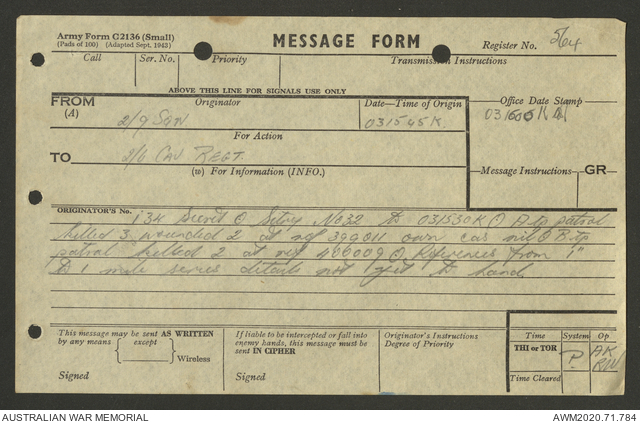 Army Form C2136 (Small)
(Pads of 100) (Adapted Sept. 1942)
MESSAGE FORM
Register No. 564
Call Ser. No. Priority Transmission Instructions
ABOVE THIS LINE FOR SIGNALS USE ONLY
FROM Originator Date—Time of Origin Office Date Stamp
(A) 2/9 Sqn 031545K
For Action
TO 2/6 Cav REGT.
(W) For Information (INFO.) Message Instructions GR
ORIGINATOR'S No. 134 Secret O Sitrep No 32 to 031530K O A tp patrol
killed 3 wounded 2 at ref 399011 own cas nil O B tp
patrol killed 2 at ref 406009 O References from 1"
to 1 mile series details not yet to hand
This message may be sent AS WRITTEN
by any means except
Wireless
Signed
If liable to be intercepted or fall into
enemy hands, this message must be
sent IN CIPHER
Signed
Originator's Instructions
Degree of Priority
Time System Op
THI or TOR P AK
RW
Time Cleared
AUSTRALIAN WAR MEMORIAL AWM2020.71.784